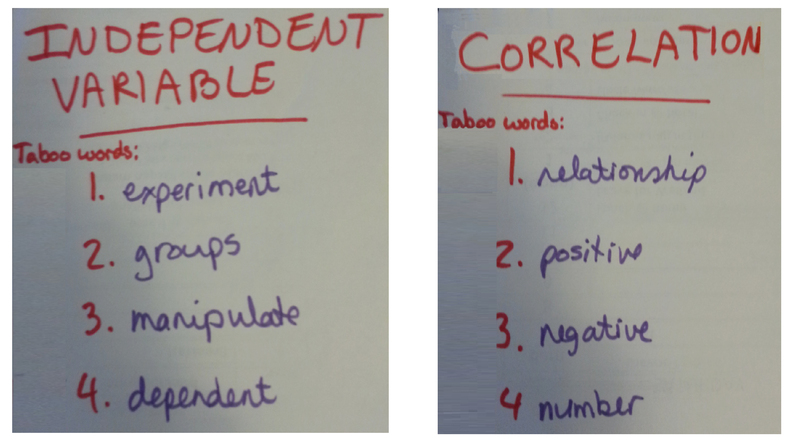 INDEPENDENT
VARIABLE
Taboo words:
1. experiment
2. groups
3. manipulate
4. dependent
CORRELATION
Taboo words:
1. relationship
2. positive
3. negative
4 number